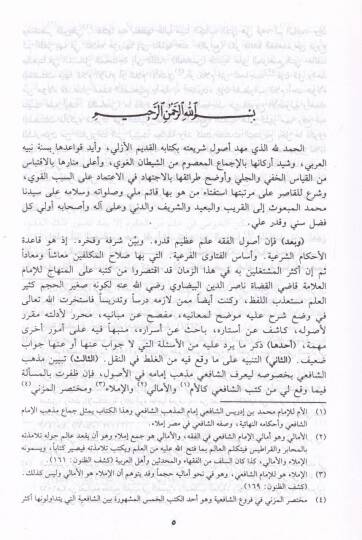 بسم الله الرحمن الرحيم
الحمد لله الذي مهد أصول شريعته بكتابه القديم الأزلي، وأيد قواعدها بسنة نبيه
العربي، وشيد أركانها بالإجماع المعصوم من الشيطان الغوي، وأعلى منارها بالاقتباس
من القياس الخفي والجلي وأوضح طرائقها بالاجتهاد في الاعتماد على السبب القوي،
وشرع للقاصر على مرتبتها استفتاء من هو بها قائم ملي وصلواته وسلامه على سيدنا
محمد المبعوث إلى القريب والبعيد والشريف والدني وعلى آله وأصحابه أولي كل
فضل سني وقدر علي.
(وبعد) فإن أصول الفقه علم عظيم قدره. وبيّن شرفه وفخره. إذ هو قاعدة
الأحكام الشرعية. وأساس الفتاوى الفرعية. التي بها صلاح المكلفين معاشاً ومعاداً
ثم إن أكثر المشتغلين به في هذا الزمان قد اقتصروا من كتبه على المنهاج للإمام
العلامة قاضي القضاة ناصر الدين البيضاوي رضي الله عنه لكونه صغير الحجم كثير
العلم مستعذب اللفظ، وكنت أيضاً ممن لازمه درساً وتدريساً فاستخرت الله تعالى
في وضع شرح عليه موضح لمعانيه، مفصح عن مبانيه، محرر لأدلته مقرر
لأصوله، كاشف عن أستاره، باحث عن أسراره، منبهاً فيه على أمور أخرى
مهمة، (أحدها) ذكر ما يرد عليه من الأسئلة التي لا جواب عنها أو عنها جواب
ضعيف. (الثاني) التنبيه على ما وقع فيه من الغلط في النقل. (الثالث) تبيين مذهب
الشافعي بخصوصه ليعرف الشافعي مذهب إمامه في الأصول، فإن ظفرت بالمسألة
فيما وقع لي من كتب الشافعي كالأم (١) والأمالي (٢) والإملاء (٣) ومختصر المزني (٤)
(١) الأم للإمام محمد بن إدريس الشافعي إمام المذهب الشافعي وهذا الكتاب يمثل جماع مذهب الإمام
الشافعي وأحكامه النهائية، وصفه الشافعي في مصر إملاء.
(٢) والأمالي هو أمالي الإمام الشافعي في الفقه، والأمالي هو جمع إملاء وهو أن يقعد عالم حوله تلامذته
بالمحابر والقراطيس فيتكلم العالم بما فتح الله عليه من العلم ويكتب تلامذته فيصير كتاباً، ويسمونه
الإملاء والأمالي، كذا كان السلف من الفقهاء والمحدثين وأهل العربية (كشف الظنون: ١٦١).
(٣) الإملاء، هو للإمام الشافعي وهو نحو أماليه حجماً وقد يتوهم أن الإملاء هو الأمالي وليس كذلك.
(كشف الظنون: ١٦٩).
(٤) مختصر المزني في فروع الشافعية وهو أحد الكتب الخمس المشهورة بين الشافعية التي يتداولونها أكثر
٥